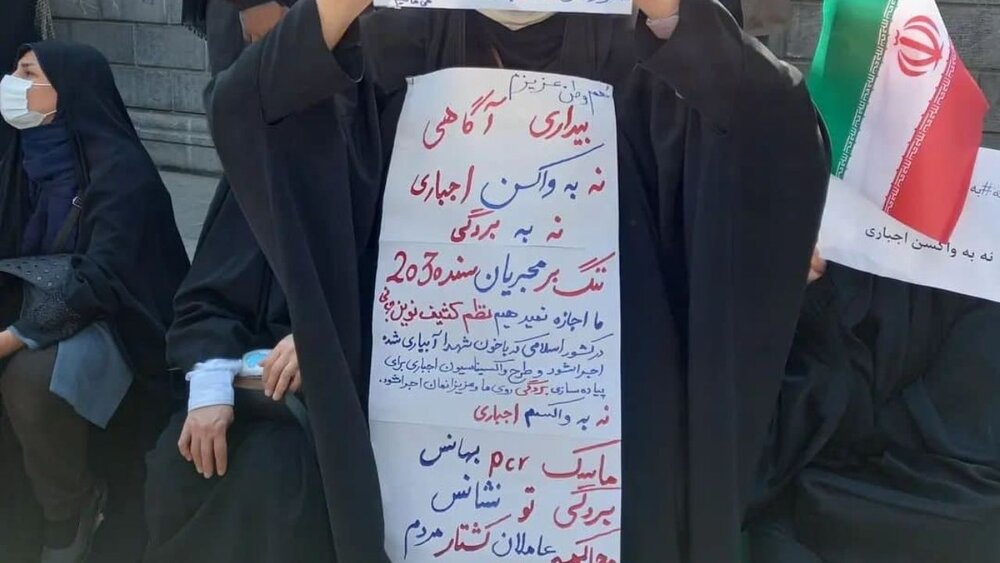 هم وطن عزیزم
بیداری آگاهی
نه به واکسن اجباری
نه به بردگی
ننگ بر مجریان سند 2030
ما اجازه نمیدهیم نظم کثیف نوین جهانی
در کشور اسلامی که با خون شهدا آبیاری شده
اجرا شود و طرح واکسیناسیون اجباری برای
پیاده سازی بردگی روی ما و عزیزانمان اجرا شود.
نه به واکسم اجباری
ماسک pcr بهانس
بردگی تو نشانس
عاملان کشتار مردم
نه به واکسن اجباری